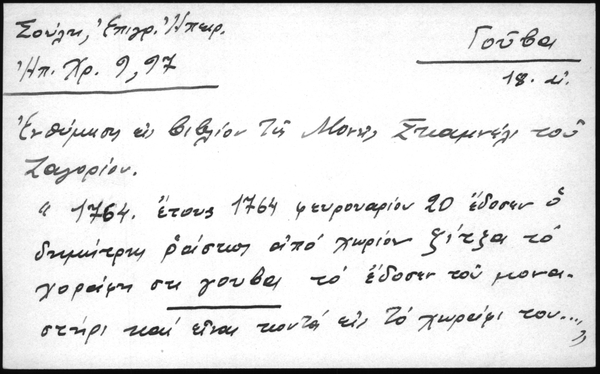 Σούλη, Ἐπιγρ. Ἠπειρ.
Ἠπ. Χρ. 9, 97
Γοῦβα
18. αἰ.
Ἐνθύμηση εἰς βιβλίον τῆς Μονῆς Σκαμνέλι τοῦ
Ζαγορίου.
“ 1764. ἔτους 1764 φευρουαρίου 20 ἔδοσεν ὁ
δημήτρης ῥάπτης ἀπό χωρίον ξίτξα τό
χοράφη στη γουβα τό ἔδοσεν τοῦ μονα-
στήρι καί εἶναι κοντά εἰς τό χωράφι του...”